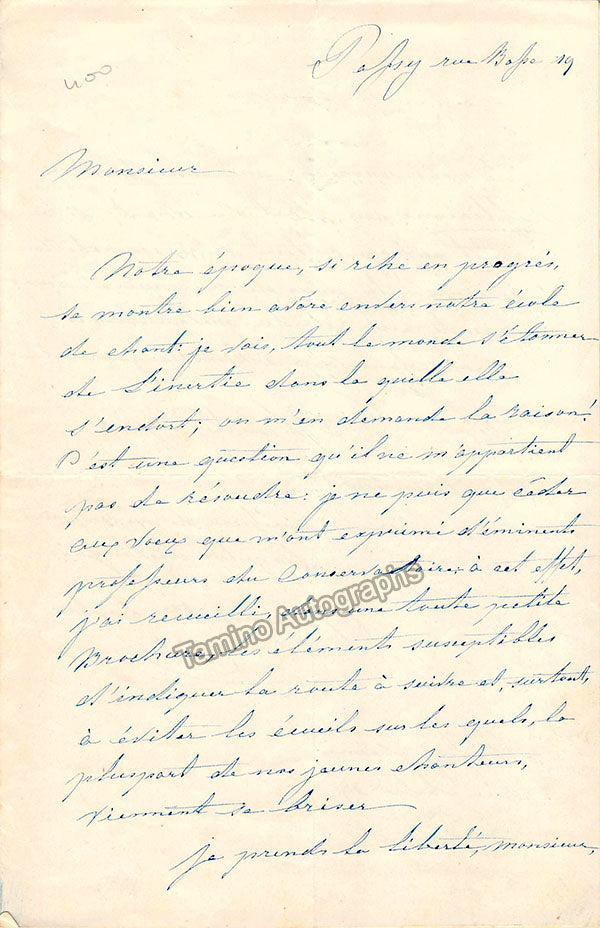 400
Passy rue Basse 19
Monsieur
Notre époque, si riche en progrès,
se montre bien avare envers notre école
de chant: je vois, tout le monde s'étonner
de l'inertie dans la quelle elle
s'endort; on m'en demande la raison!
C'est une question qu'il ne m'appartient
pas de résoudre: je ne puis que céder
aux voeux que m'ont exprimé d'éminents
professeurs du Conservatoire; à cet effet,
j'ai recueilli, dans une toute petite
Brochure, les eléments susceptibles
d'indiquer la route à suivre et, surtout,
à éviter les écueils sur les quels, la
pluspart de nos jeunes chanteurs,
viennent se briser
je prends la liberté, monsieur,
Tamino Autographs